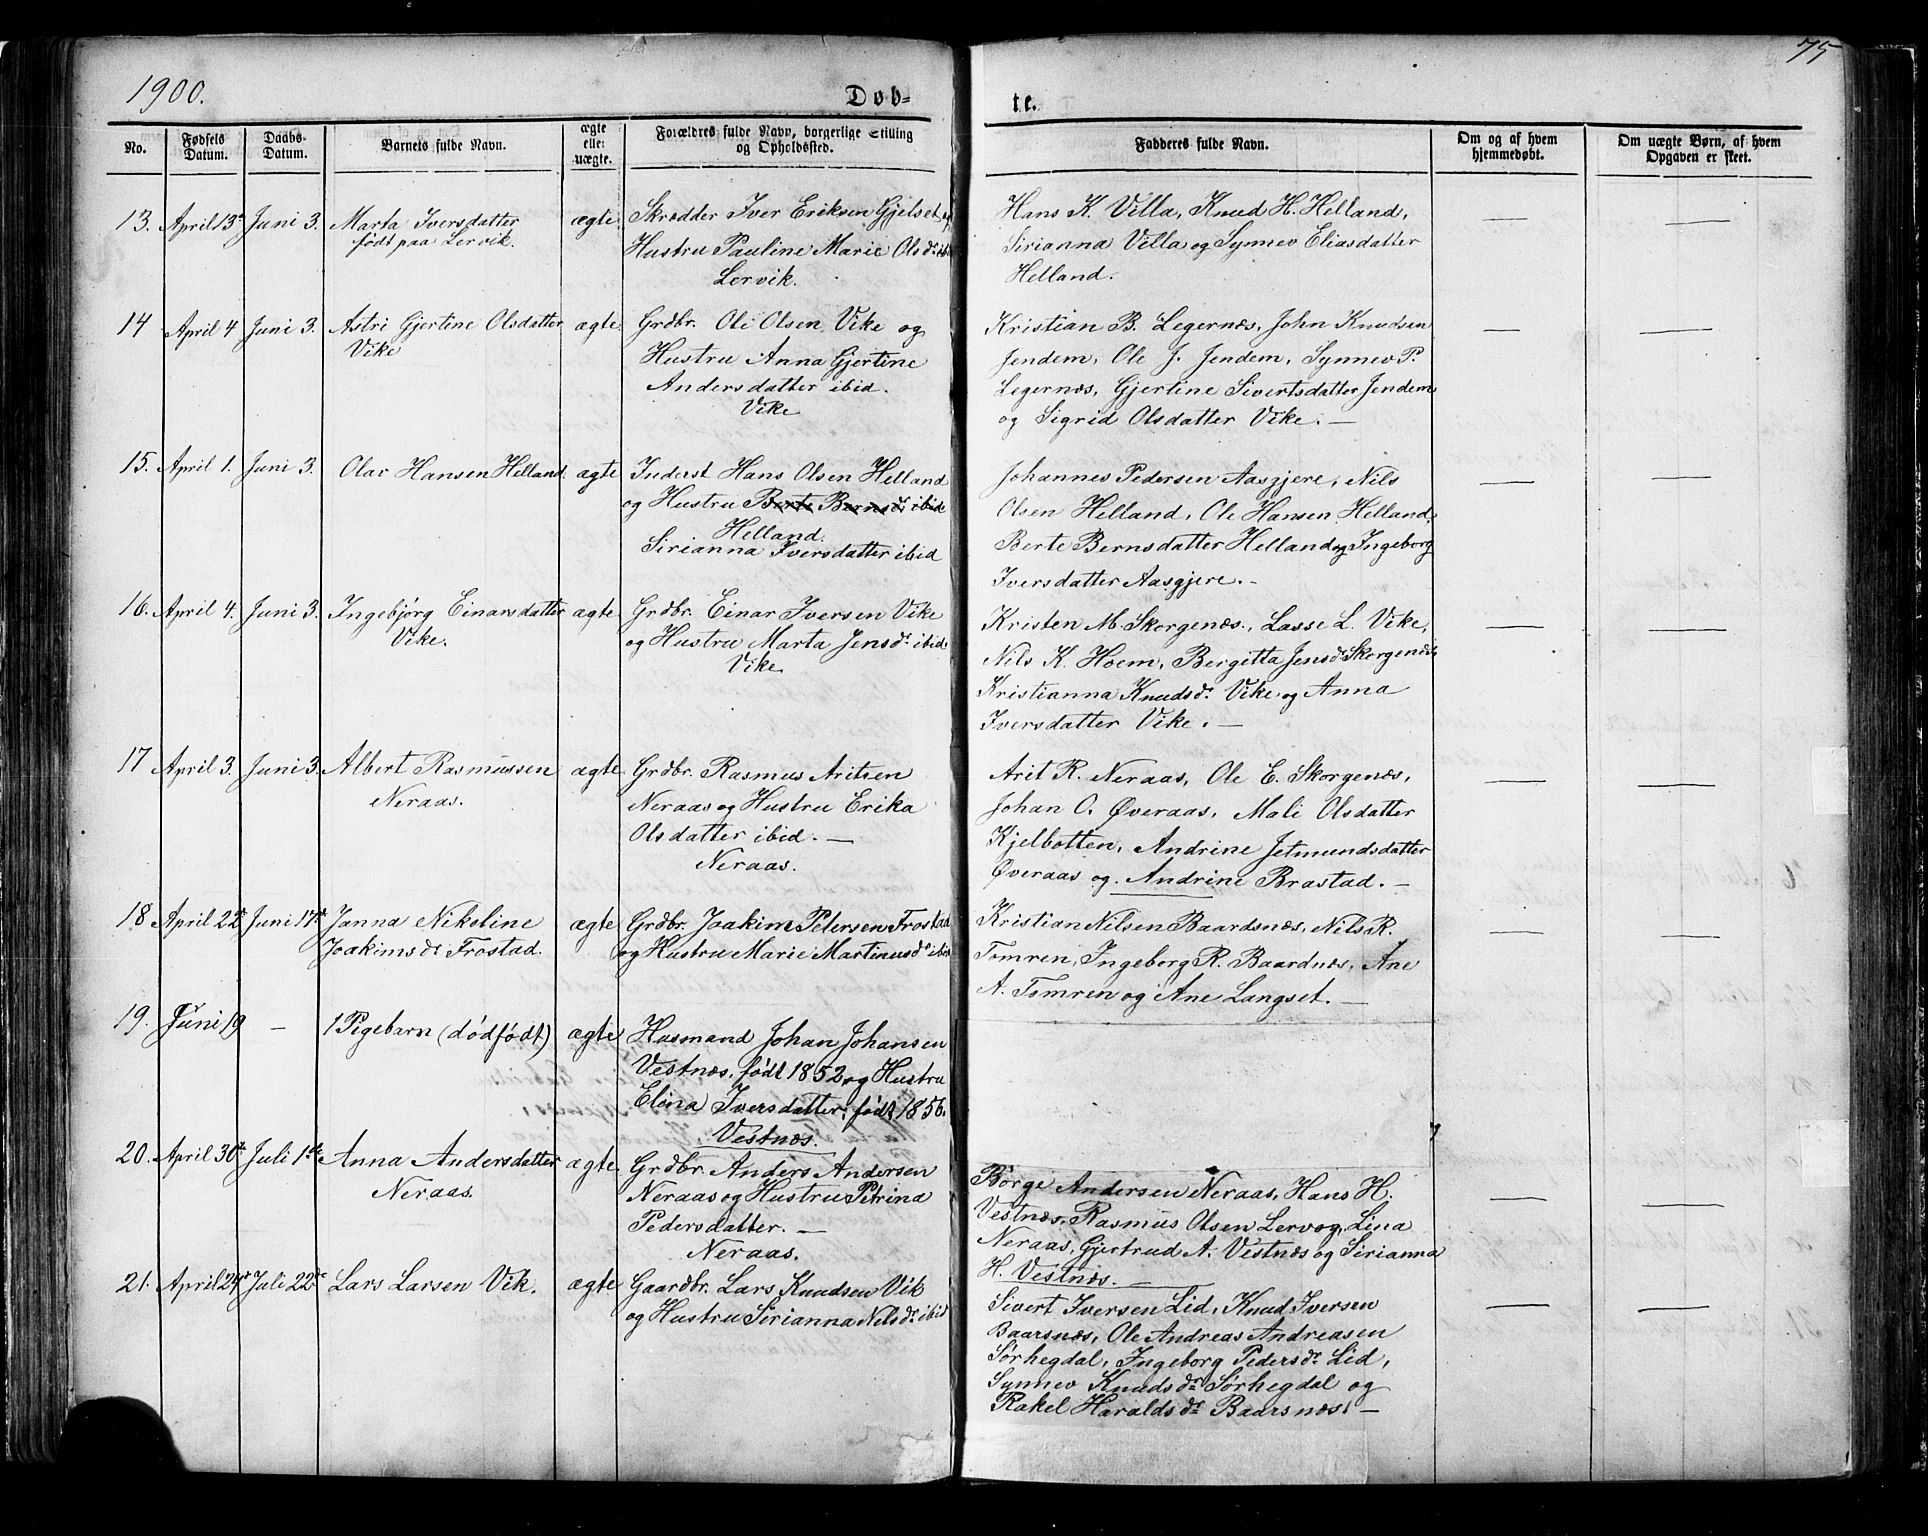 1900.
Døb-
te.
75
No.
Fødsels Datum.
Daabs- Datum.
Barnets fulde Navn.
ægte eller uægte.
Forældres fulde Navn, borgerlige Stilling og Opholdssted.
Fadderes fulde Navn.
Om og af hvem hjemmedøbt.
Om uægte Børn, af hvem Opgaven er skeet.
13. April 13de Juni 3. Marta Iversdatter ægte. Skrædder Iver Eriksen Gjelset og
født paa Lervik. Hustru Pauline Marie Olsdr ibid
Lervik.
Hans K. Villa, Knud H. Helland,
Sirianna Villa og Synnev Eliasdatter
Helland.
14 April 4 Juni 3. Astri Gjertine Olsdatter ægte. Grdbr. Ole Olsen Vike og
Vike Hustru Anna Gjertine
Andersdatter ibid.
Vike
Kristian B. Legernæs, John Knudsen
Jendem, Ole J. Jendem, Synnev P.
Legernæs, Gjertine Sivertsdatter Jendem
og Sigrid Olsdatter Vike. —
15. April 1. Juni 3. Olav Hansen Helland. ægte Inderst Hans Olsen Helland
og Hustru Berte Bernsdr ibid
Helland.
Sirianna Iversdatter ibid
Johannes Pedersen Aasgjere, Nils
Olsen Helland, Ole Hansen Helland,
Berte Bernsdatter Helland og Ingeborg
Iversdatter Aasgjere. -
16. April 4. Juni 3. Ingebjørg Einarsdatter ægte. Grdbr. Einar Iversen Vike
Vike. og Hustru Marta Jensdr ibid.
Vike.
Kristen M. Skorgenæs, Lasse L. Vike,
Nils K. Hoem, Bergitta Jensdr Skorgenæs,
Kristianna Knudsdr. Vike og Anna
Iversdatter Vike. —
17 April 3. Juni 3. Albert Rasmussen ægte. Grdbr. Rasmus Aritsen
Neraas. Neraas og Hustru Erika
Olsdatter ibid. —
Neraas.
Arit R. Neraas, Ole E. Skorgenæs,
Johan O. Øveraas, Mali Olsdatter
Kjelbotten, Andrine Jetmundsdatter
Øveraas og Andrine Brastad. —
18 April 22de Juni 17de Janna Nikoline ægte Grdbr. Joakim Petersen Frostad
Joakimsdr Frostad. og Hustru Marie Martinusdr ibid
Kristian Nilsen Baardsnæs, Nils R.
Tomren, Ingeborg R. Baardnæs, Ane
A. Tomren og Ane Langset. —
19. Juni 19 — 1 Pigebarn (dødfødt) ægte Husmand Johan Johansen
Vestnæs, født 1852 og Hustru
Elena Iversdatter, født 1856.
Vestnæs.
20. April 30te Juli 1ste Anna Andersdatter ægte. Grdbr. Anders Andersen
Neraas. Neraas og Hustru Petrina
Pedersdatter. —
Neraas.
Børge Andersen Neraas, Hans H.
Vestnæs, Rasmus Olsen Lervog, Lina
Neraas, Gjertrud A. Vestnæs og Sirianna
H. Vestnæs. —
21. April 24de Juli 22de Lars Larsen Vik. ægte Gaardbr. Lars Knudsen Vik
og Hustru Sirianna Nilsdr ibid
Sivert Iversen Lid, Knud Iversen
Baarsnæs, Ole Andreas Andreasen
Sørhegdal, Ingeborg Pedersdr Lid,
Synnev Knudsdr Sørhegdal og
Rakel Haraldsdr Baarsnæs. —